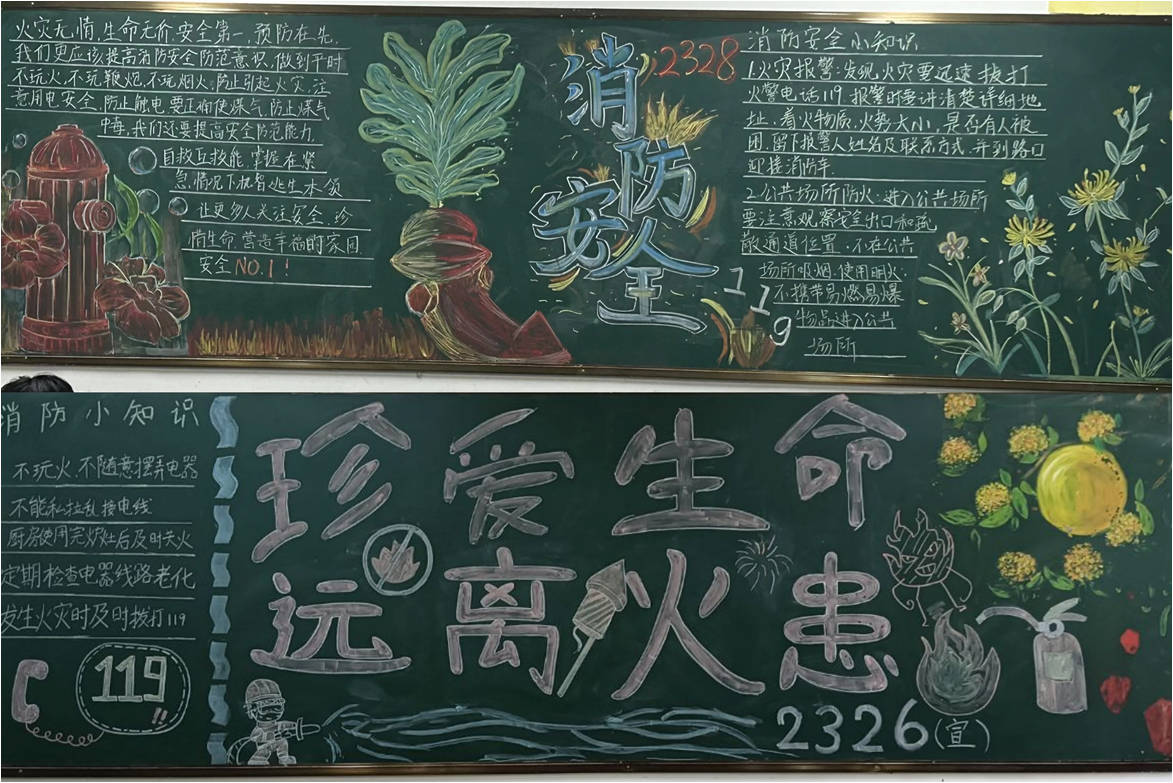 火灾无情,生命无价,安全第一,预防在先,
我们更应该提高消防安全防范意识,做到平时
不玩火,不玩鞭炮,不玩烟火,防止引起火灾,注
意用电安全,防止触电,要正确使煤气,防止煤气
中毒,我们还要提高安全防范能力,
自救互技能,掌握在紧
急情况下机智逃生本领
让更多人关注安全,珍
惜生命,营造幸福的家园
安全NO.1!
消防安全
2328
119
消防安全小知识
1.火灾报警:发现火灾要迅速拨打
火警电话119,报警时要讲清楚详细地
址、着火物质、火势大小、是否有人被
困,留下报警人姓名及联系方式,并到路口
迎接消防车.
2.公共场所防火:进入公共场所
要注意观察安全出口和疏
散通道位置,不在公共
场所吸烟、使用明火,
不携带易燃易爆
物品进入公共
场所
消防小知识
不玩火,不随意摆弄电器
不能私拉乱接电线
厨房使用完炉灶后及时关火
定期检查电器线路老化
发生火灾时及时拨打119
119!!
珍爱生命
远离火患
2326(宣)